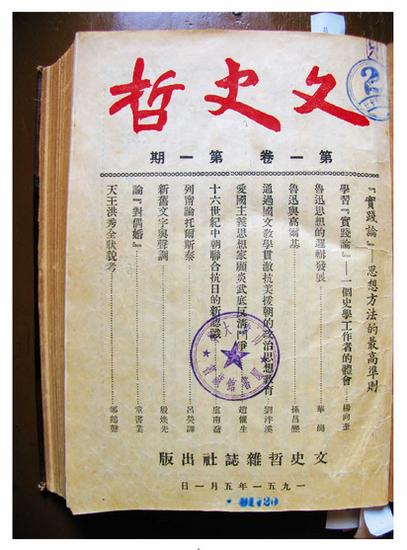 文史哲
第一卷 第一期
『實踐論』——思想方法的最高準則
學習『實踐論』——一個史學工作者的體會 楊向奎
魯迅思想的邏輯發展 華崗
魯迅與高爾基 孫昌熙
通過國文教學貫澈抗美援朝的政治思想教育 劉泮溪
愛國主義思想家顧炎武底反清鬥爭 趙儷生
十六世紀中朝聯合抗日的新認識 盧南喬
列甯論托爾斯泰 呂熒譯
新舊文字與聲調 殷煥先
論『對偶婚』 童書業
天王洪秀全狀貌考 鄭鶴聲
文史哲雜誌社出版
一九五一年五月一日
01720
2